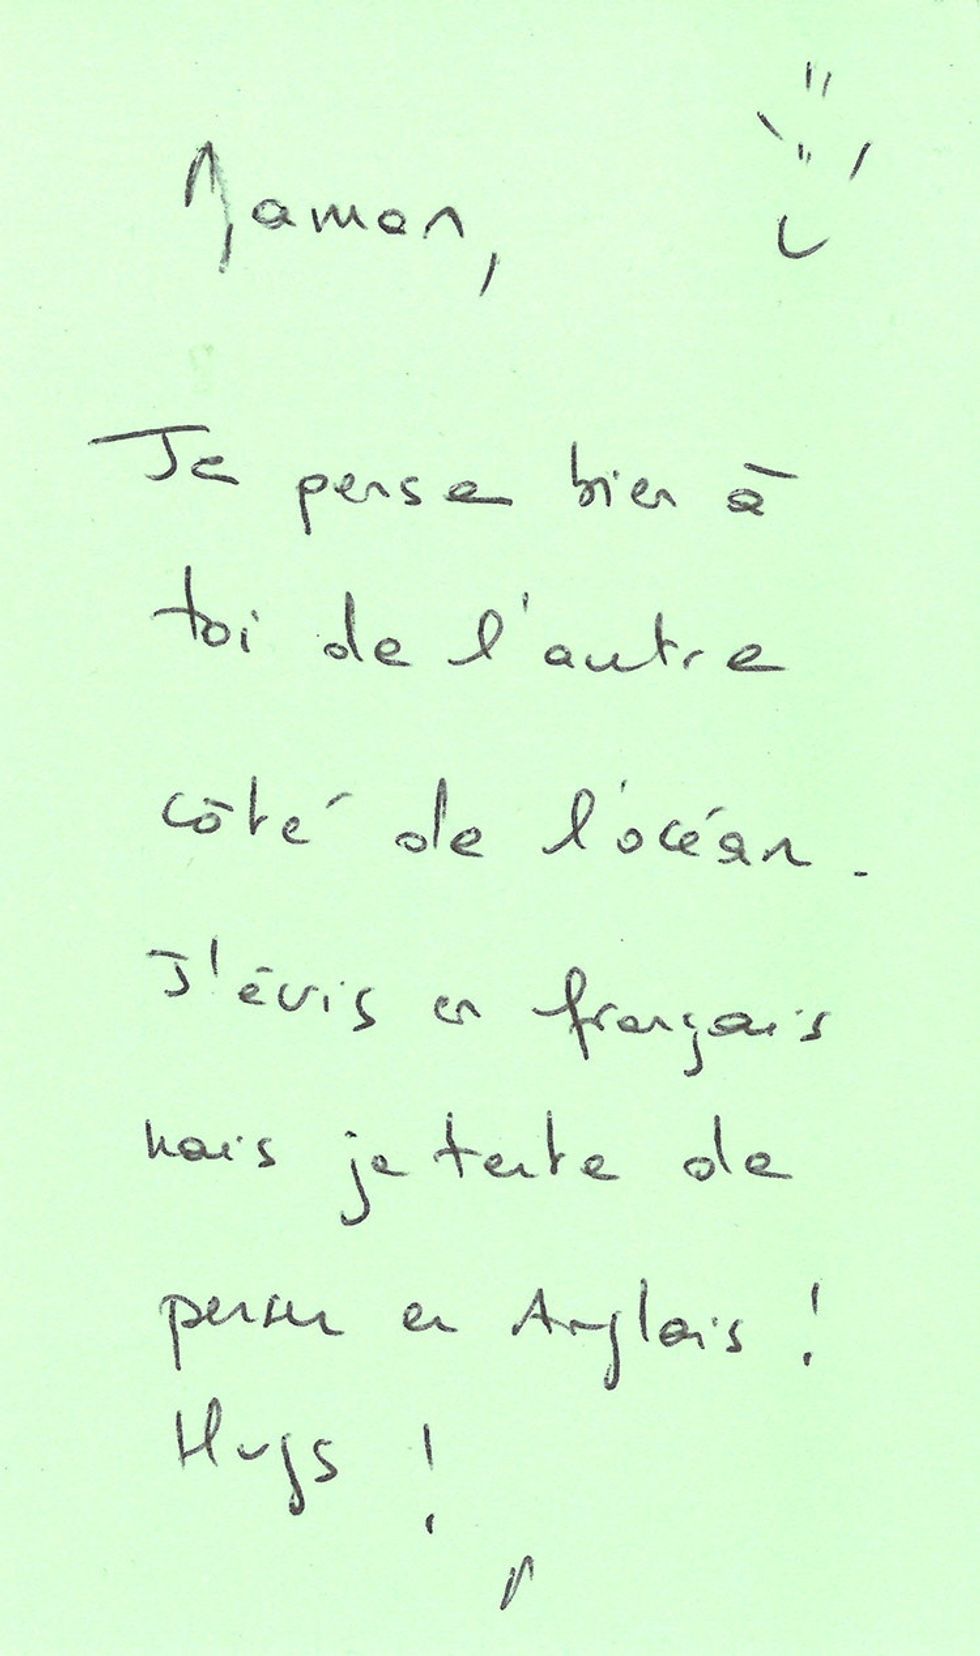 Maman,
Je pense bien à
toi de l'autre
côté de l'océan.
J'écris en français
mais je tente de
penser en Anglais !
Hugs !